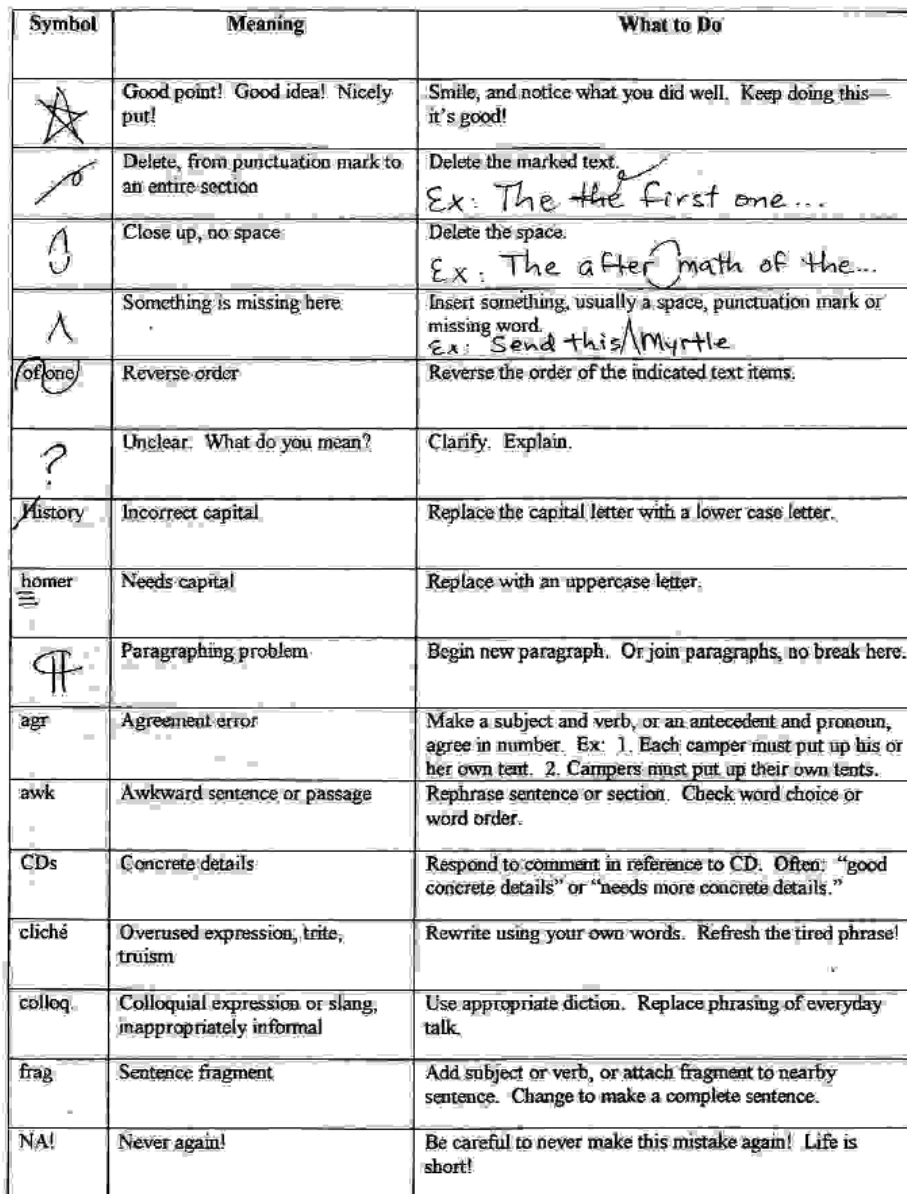 Symbol Meaning What to Do
Good point! Good idea! Nicely Smile, and notice what you did well. Keep doing this—
put! it's good!
Delete, from punctuation mark to Delete the marked text.
an entire section Ex: The the first one...
Close up, no space Delete the space.
Ex: The after math of the...
Something is missing here Insert something, usually a space, punctuation mark or
missing word.
Ex: Send this Myrtle
of one Reverse order Reverse the order of the indicated text items.
? Unclear. What do you mean? Clarify. Explain.
History Incorrect capital Replace the capital letter with a lower case letter.
homer Needs capital Replace with an uppercase letter.
¶ Paragraphing problem Begin new paragraph. Or join paragraphs, no break here.
agr Agreement error Make a subject and verb, or an antecedent and pronoun,
agree in number. Ex: 1. Each camper must put up his or
her own tent. 2. Campers must put up their own tents.
awk Awkward sentence or passage Rephrase sentence or section. Check word choice or
word order.
CDs Concrete details Respond to comment in reference to CD. Often: “good
concrete details” or “needs more concrete details.”
cliché Overused expression, trite, Rewrite using your own words. Refresh the tired phrase!
truism
colloq. Colloquial expression or slang, Use appropriate diction. Replace phrasing of everyday
inappropriately informal talk.
frag Sentence fragment Add subject or verb, or attach fragment to nearby
sentence. Change to make a complete sentence.
NA! Never again! Be careful to never make this mistake again! Life is
short!